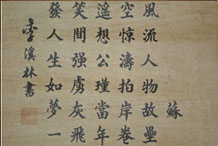 蘇
風流人物故壘
空驚濤拍岸卷
遙想公瑾當年
笑間強虜灰飛
發人生如夢一
李溪林書